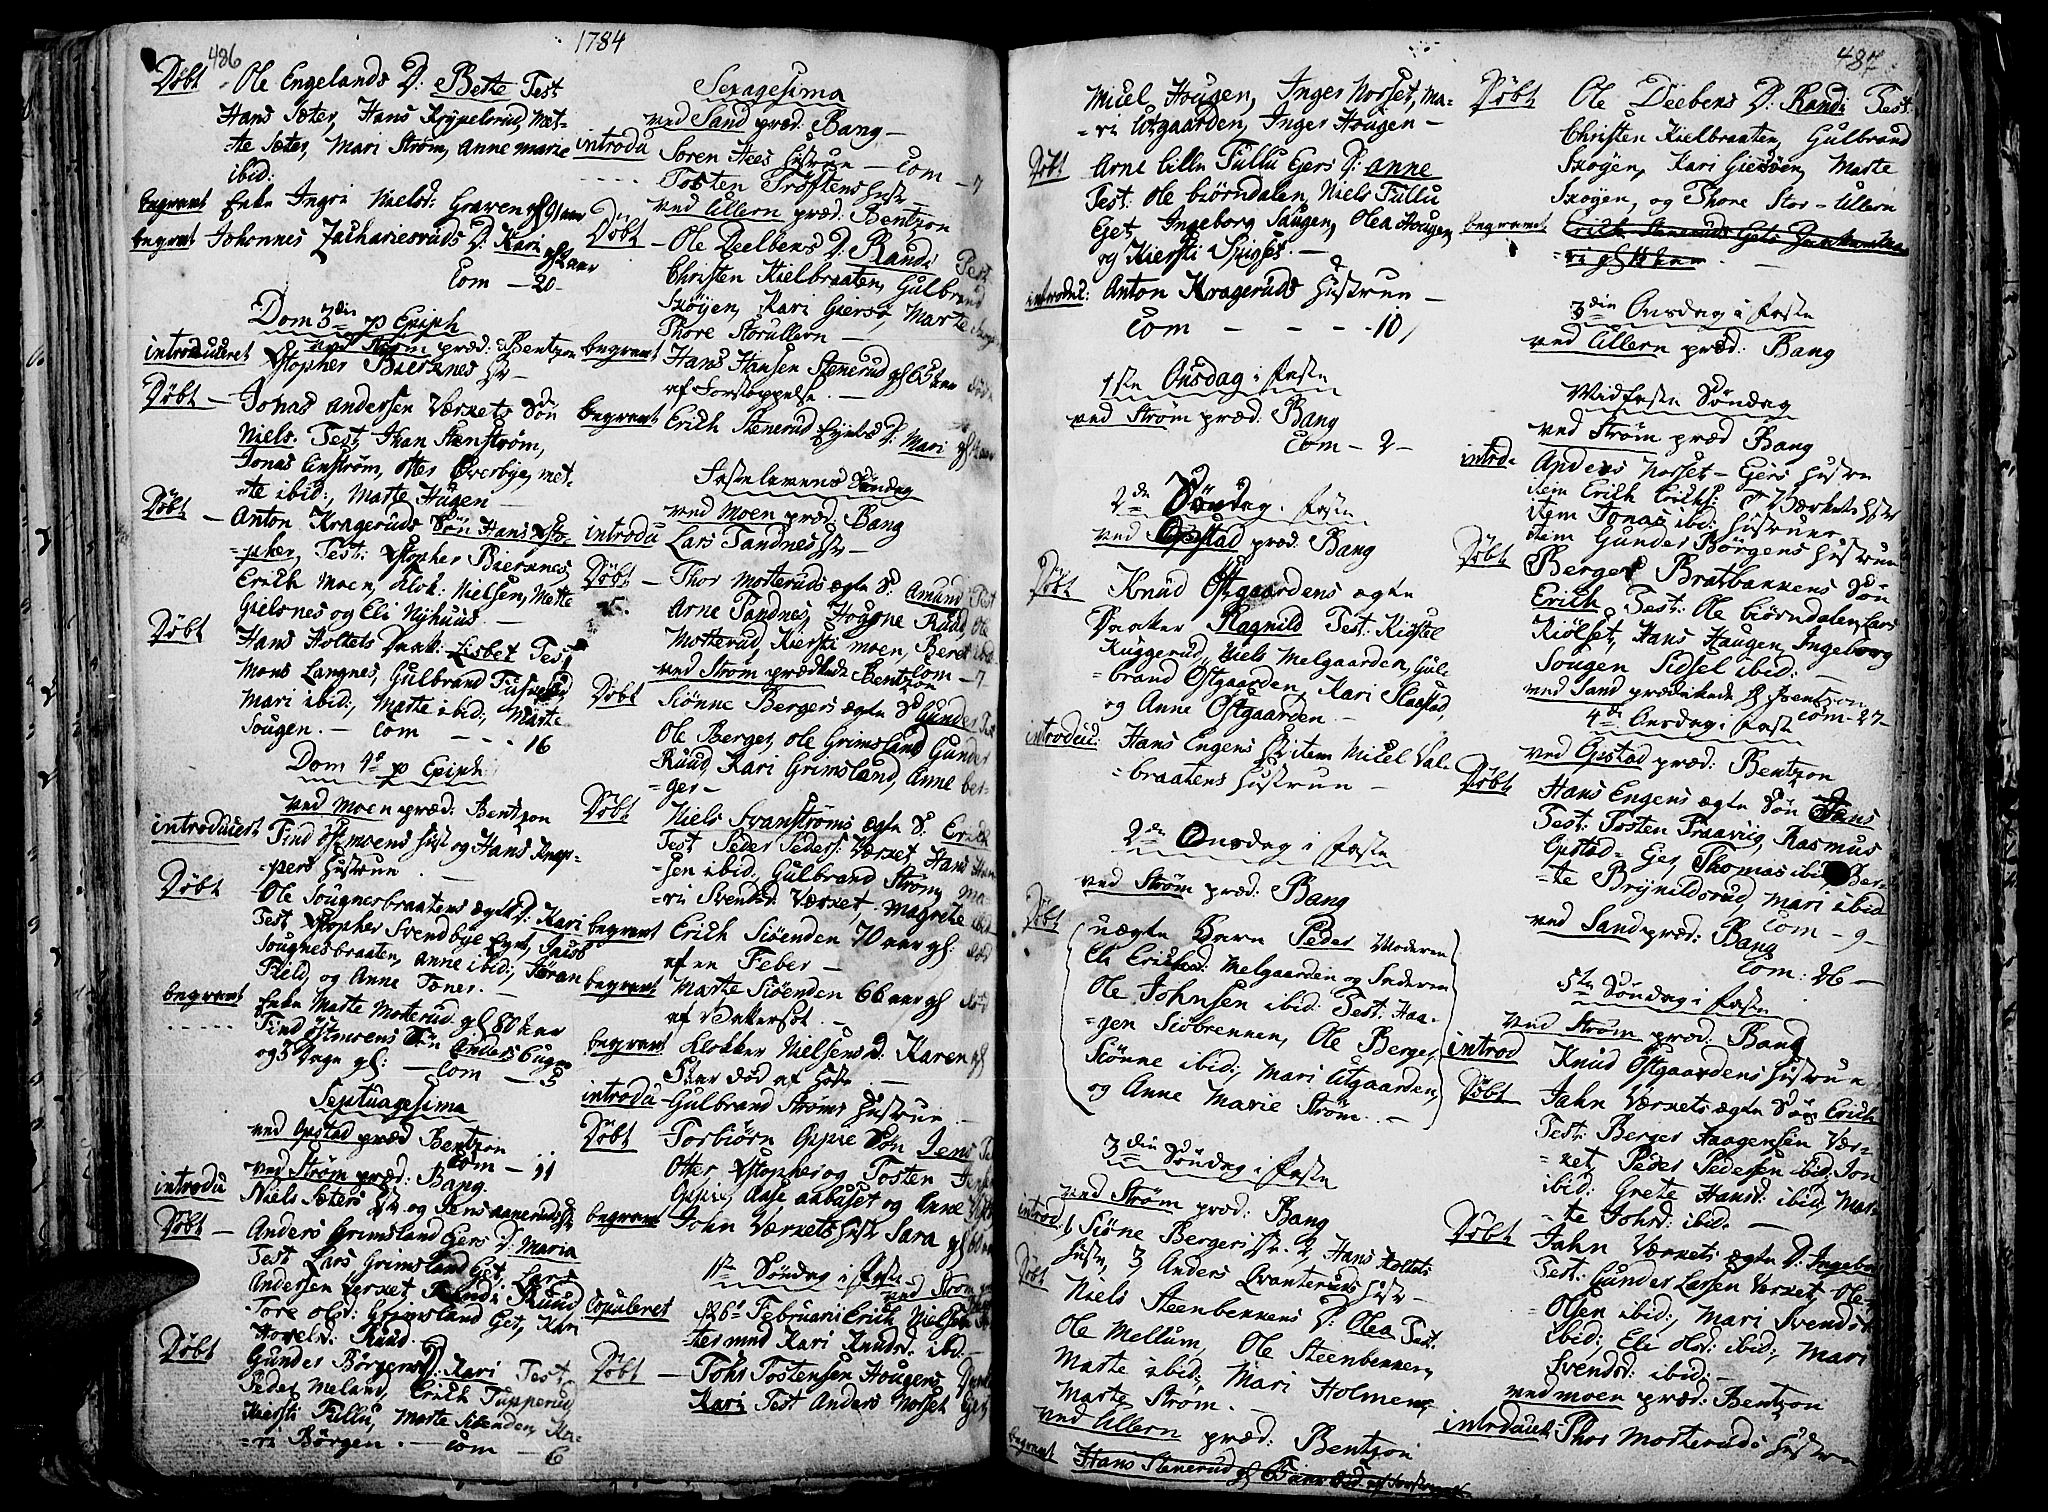 486
1784
Döbt - Ole Engelands D: Bette Test
Hans Sæter, Hans Krypelsrud, Met-
te Sæter, Mari Ström, Anne Marie
ibid:
begravt Enke Ingri Nielsd: Graven gl 91 aar
begravt Johannes Zachariesruds D: Kari
gl 2 aar
Com - 20 -
Dom 3die p Epiph
ved Strøm præd: Bentzon
introduceret Xstopher Bierknes Hr -
Döbt - Jonas Andersen Værkets Søn
Niels. Test Johan Stenström,
Jonas Linström, Ofter Overbye, Met-
te ibid:, Marte Haugen -
Döbt - Anton Krageruds Søn Hans Xsto-
pher, Test: Xstopher Bierknes,
Erich Moen, Klok: Nielsen, Mette
Gielsnes og Eli Nyhuus -
Döbt Hans Holtets Daat: Lisbet Test
Mons Langnes, Gulbrand
Mari ibid:, Marte ibid:, Marte
Sougen. - Com - - - 16
Dom 4de p Epiph
ved Moen præd: Bentzon
introducert Find Östmoens Hust og Hans Knap-
pers Hustrue
Döbt - Ole Sougnesbraatens ægte D: Kari
Test Xstopher Svendbye Eget, Jacob
Sougnesbraaten, Anne ibid:, Jøran
Field, og Anne Tones. -
begravt Enke Marte Mosterud gl 80 aar
Find Östmoens Søn Anders 6 uger
og 5 Dage gl: - Com - 5
Septuagesima
ved Opstad præd Bentzon
Com - 11
ved Strøm præd: Bang.
introdu Niels Sæters Hr og
Döbt - Anders Grimsland Eiers D: Maria
Test Lars Grimsland Eget, Lars
Andersen Værket, Randi Ruud
Tore Olsd: Grimsland Eget, Kari
Hovelsd: Ruud -
Döbt Gunder Börgens D: Kari Test
Peder Meland, Erich Tupperud
Kiersti Fullu, Marte Siöenden, Ka-
ri Börgen. - Com - 6
Sexagesima
ved Sand præd: Bang -
introdu Søren Hees Hustrue - Com - 7
Tosten Tröftens Hustr
ved Ullern præd: Bentzon
Döbt - Ole Deelbens D: Randi Test
Christen Kielbraaten, Gulbrand
Skøyen, Kari Giersø, Marte
Thore Storullern -
begravt Hans Hansen Stenerud gl 65 aar
af Forstoppelse. -
begravt Erich Stenerud Eyets D: Mari gl
Fastelavens Søndag
ved Moen præd: Bang
introdu Lars Sandnes Hr -
Döbt - Thor Mosteruds ægte S: Amund Test
Arne Sandnes, Haagne Ruud, Ole
Mosterud, Kiersti Moen, Beret ibid
Com - 7
ved Strøm prædikede Bentzon
Döbt Siönne Bergers ægte S Gunder Test
Ole Berger, Ole Grimsland, Gunder
Ruud, Kari Grimsland, Anne Ber-
ger -
Döbt Niels Svanströms ægte S. Erich
Test Peder Peders: Værket, Hans Han-
sen ibid:, Gulbrand Strøm, Ma-
ri Svendsd: Værket, Magrete
begravt Erich Siöenden 70 aar gl: død
af en Feber -
begravt Marte Siöenden 66 aar gl død
af Vattersot. -
begravt Klokker Nielsens D: Karen gl
5 aar død af Hoste -
introdu - Gulbrand Ströms Hustrue -
Döbt - Torbiörn Oppie Søn Jens Test
Otter Xstopher og Tosten
Oppie, Aase
begravt - John Værkets Hustr Sara gl 60 aar
1ste Søndag i Faste
ved Strøm præd
Copuleret d 26de Februarii Erich Nielsen
med Kari Knudsd. ibid: -
Döbt - Tohr Tostensen Hougens
Kari Test Anders Norset Eget,
487
Micel Hougen, Inger Norset, Ma-
ri Utgaarden, Inger Hougen -
Döbt Arne Lille Fullu Eiers D: Anne
Test: Ole Biörndalen, Niels Fullu
Eget, Ingeborg Haugen, Olea Hougen,
og Kiersti Spiges. -
introduc: Anton Krageruds Hustrue -
Com - - - - 10 /
1ste Onsdag i Faste
ved Strøm præd: Bang
Com - 2 -
2den Søndag i Faste
ved Opstad præd: Bang
Döbt Knud Östgaardens ægte
Daatter Ragnild Test: Kiøstel
Ruggerud, Niels Melgaarden, Gul-
brand Östgaarden, Kari Slaastad,
og Anne Östgaarden. -
introduc: Hans Engens Hr item Micel Val-
braatens Hustrue -
2den Onsdag i Faste
ved Strøm præd: Bang
Döbt uægte Barn Peder Moderen
Eli Erichsd: Melgaarden og Faderen
Ole Johnsen ibid: Test: Haa-
gen Siöbrennen, Ole Berger,
Siönne ibid:, Mari Utgaarden,
og Anne Marie Strøm. -
3die Søndag i Faste
ved Strøm præd: Bang
introd. 1, Siöne Bergers Hr. 2, Hans Holtets
Hustr, 3 Anders Qvanteruds Hustr -
Döbt Niels Steenbennens D: Olea Test:
Ole Mellum, Ole Steenbennen,
Marte ibid:, Mari Holmen,
Marte Strøm. -
ved Ullern præd: Bentzon
begravt Hans Stenerud gl
Döbt Ole Deebens D: Randi Test:
Christen Kielbraaten, Gulbrand
Skøyen, Kari Giersøe, Marte
Skøyen, og Thore Stor-Ullern
begravt Erich Steneruds
3die Onsdag i Faste
ved Ullern præd: Bang
Midfaste Søndag
ved Strøm præd Bang
introd. Anders Norset - Eiers Hustru
item Erich Erichs: Værkets Hstr
item Jonas ibid: Hustrue
item Gunder Börgens Hustrue
Döbt Berger Bratbakkens Søn
Erich Test: Ole Biörndalen, Lars
Kiölset, Hans Haugen, Ingeborg
Sougen Sidsel ibid: -
ved Sand prædikede Hr Bentzon
Com - 27 -
4de Onsdag i Faste
ved Opstad præd: Bentzon
Döbt Hans Engens ægte Søn Hans
Test: Tosten Praaviig, Rasmus
Opstad - Eger, Thomas ibid: Ber-
te Brynildsrud, Mari ibid
Com - 9 -
ved Sand præd: Bang
Com: 26 -
5te Søndag i Faste
ved Strøm præd: Bang
introd Knud Östgaardens Hustrue
Döbt Jahn Værkets ægte Søn Erich
Test: Berger Haagensen Vær-
ket, Peder Pedersen ibid: Jon
ibid: Grete Hansd: ibid, Mar-
te Johsd: ibid. -
Döbt Jahn Værkets ægte D: Ingebor
Test: Gunder Larsen Værket, Ole
Olsen ibid:, Mari Svendsd
ibid:, Eli Olsd: ibid:, Mari
Svendsd: ibid: -
ved Moen præd: Bentzon
introducet Thor Mosteruds Hustrue